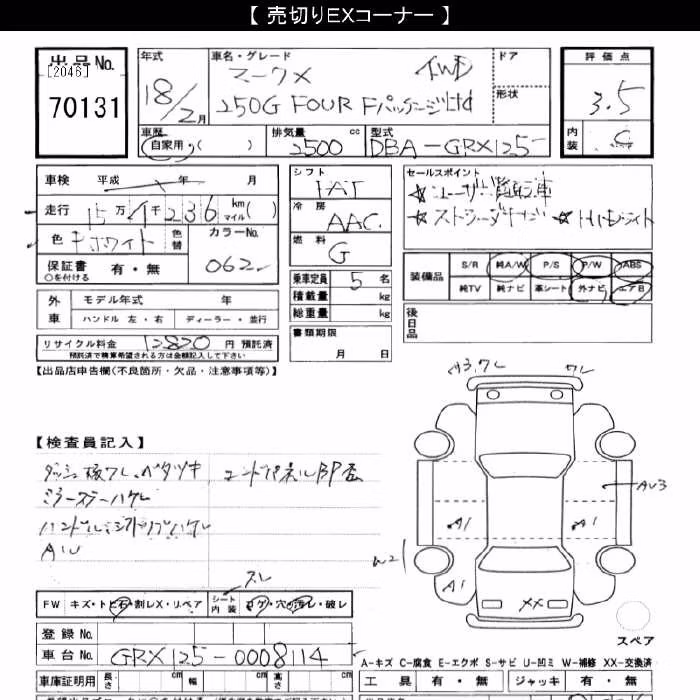 【 売切りEXコーナー 】
出品No. [2046] 70131
年式 18/2月
車名・グレード マークX 4WD
250G FOUR FパッケージLtd
ドア
形状
評価点 3.5
内装 C
車歴 自家用・( )
排気量 2500 cc
型式 DBA-GRX125
車検 平成 年 月
走行 15万 1千 236 km マイル( )
色 Pホワイト 色替 カラーNo. 062
保証書 有・無 ○を付ける
シフト IAT
冷房 AAC
燃料 G
乗車定員 5 名
積載量 kg
総重量 kg
書類期限 月 日
セールスポイント
☆ユーザー買取車
☆
装備品 S/R 純A/W P/S P/W ABS
純TV 純ナビ 革シート 外ナビ エアB
後日品
外車 モデル年式 年
ハンドル 左・右 ディーラー・並行
リサイクル料金 12820 円 預託済
預託済で精算希望される方は金額記入して下さい
【出品店申告欄(不良箇所・欠品・注意事項等)】
【検査員記入】
エンドパネルBP歪
ミラーステーハゲ
AW
A3.ワレ ワレ
AU3
A1 A1
W2
A1
XX
スペア
スレ
FW キズ・トビ石・割レX・リペア シート内装 コゲ・穴・汚レ・破レ
登録No.
車台No. GRX125-0008114
A-キズ C-腐食 E-エクボ S-サビ U-凹ミ W-補修 XX-交換済
車庫証明用 長さ cm 幅 cm 高さ cm
工具 有・無 ジャッキ 有・無